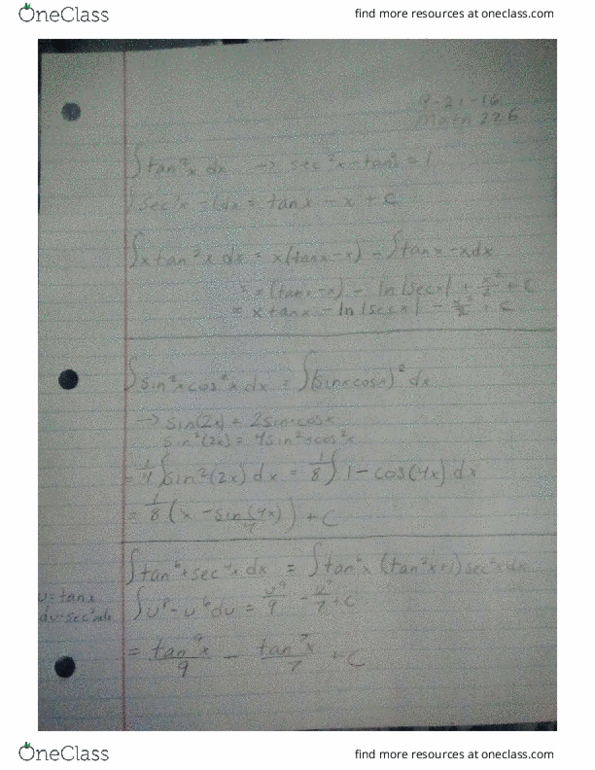 OneClass
find more resources at oneclass.com
9-21-16
Math 226
∫tan²x dx → sec²x-tan²x=1
∫sec²x -1dx = tanx - x + C
∫xtan²x dx = x(tanx-x) - ∫tanx-xdx
= x(tanx-x) - ln|secx| + x²/2 + C
= xtanx - ln|secx| - x²/2 + C
∫sin²xcos²x dx = ∫(sinxcosx)² dx
→ sin(2x) = 2sinxcosx
sin²(2x) = 4sin²xcos²x
= 1/4∫sin²(2x) dx = 1/8∫1-cos(4x) dx
= 1/8(x - sin(4x)/4) + C
∫tan⁶xsec⁴x dx = ∫tan⁶x (tan²x+1)sec²xdx
u=tanx
du=sec²xdx
∫u⁸-u⁶du = u⁹/9 - u⁷/7 + C
= tan⁹x/9 - tan⁷x/7 + C
OneClass
find more resources at oneclass.com